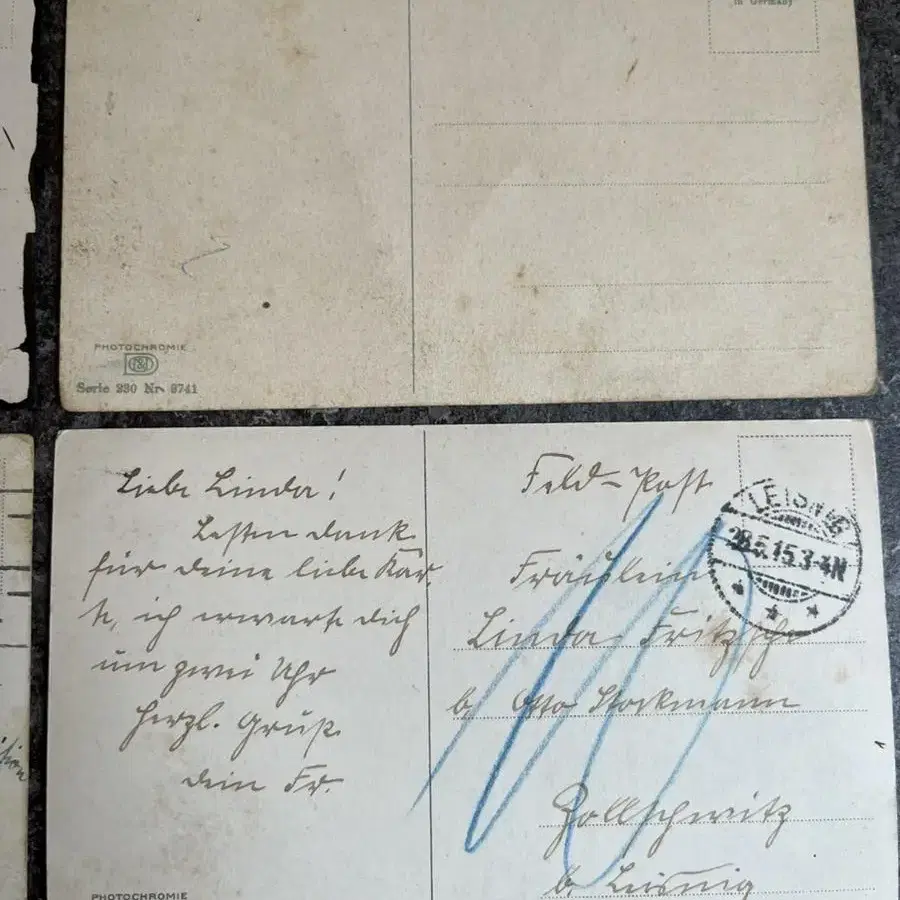 in Germany
PHOTOCHROMIE
Serie 230 Nr. 3741
Liebe Linda!
Besten Dank
für deine liebe Kar
te, ich erwarte dich
um zwei Uhr
Herzl. Gruß
dein Fr.
Feld-Post
Fräulein
Linda Fritzsche
b. Otto Stockmann
Zollschwitz
b. Leisnig
LEISNIG
28.5.15.3-4N
PHOTOCHROMIE